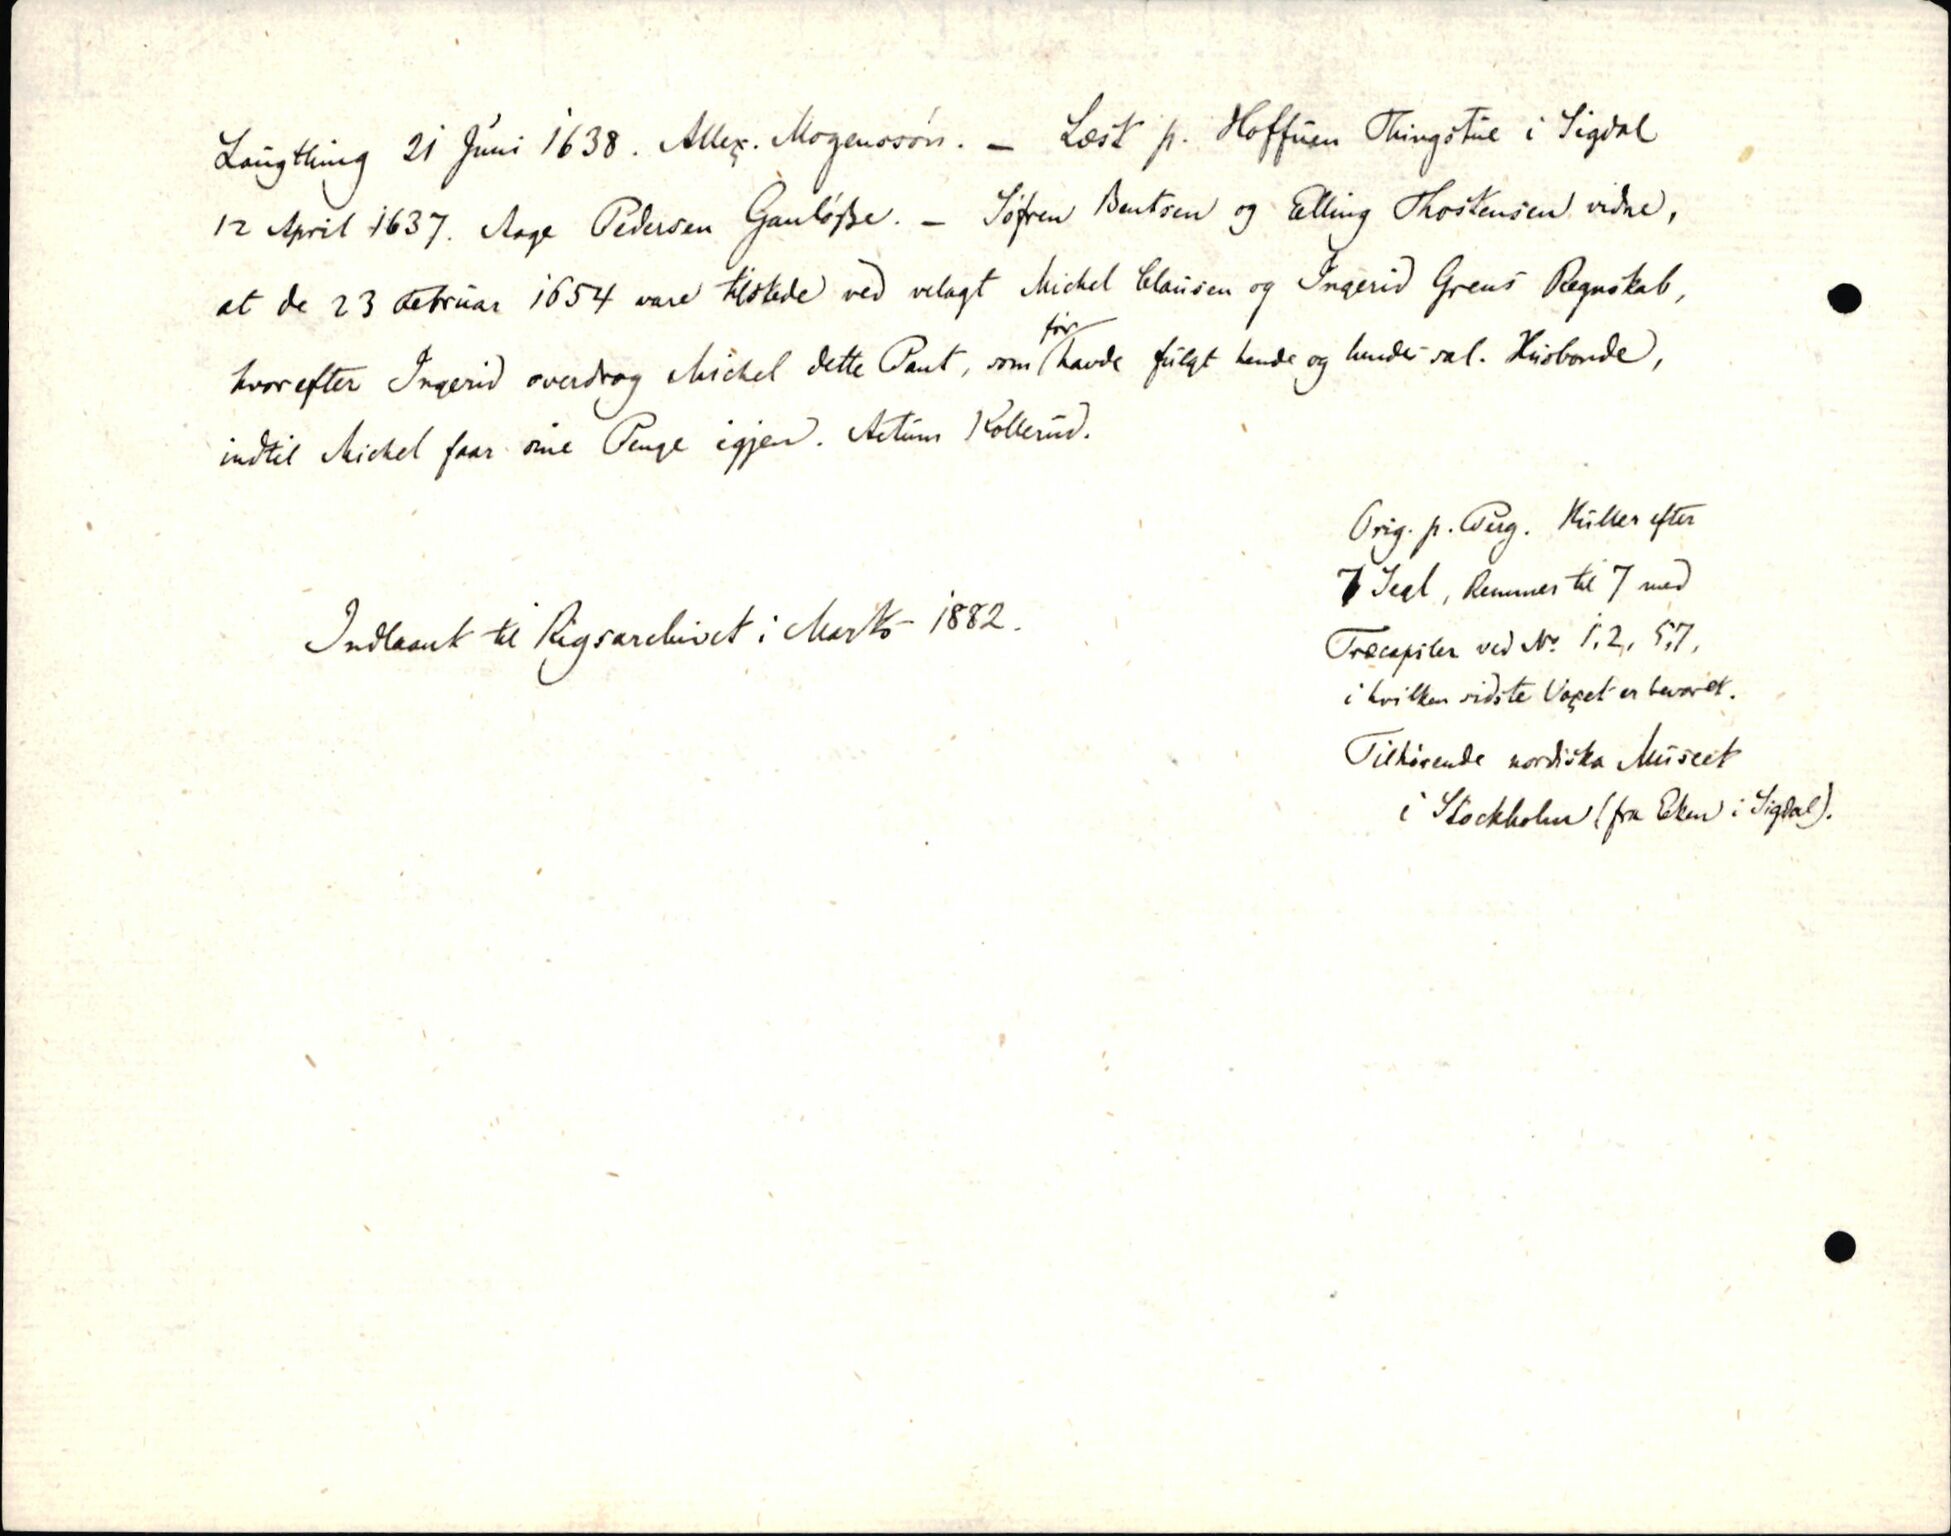 Laugthing 21 Juni 1638. Allex. Mogenssøn. – Læst p. Hoffuen Thingstue i Sigdal
12 April 1637. Aage Pedersen Gauløsse. – Søfren Bentsen og Elling Thostensen vidne,
at de 23 Februar 1654 vare tilstede ved velagt Michel Clausen og Ingerid Grens Regnskab,
hvorefter Ingerid overdrog Michel dette Pant, som før havde fulgt hende og hendes sal. Husbonde,
indtil Michel faar sine Penge igjen. Actum Kollerud.
Orig. p. Perg. Huller efter
7 Segl, Remmer til 7 med
Træcapsler ved No. 1, 2, 5, 7,
i hvilken sidste Voxet er bevaret.
Tilhørende nordiska Museet
i Stockholm (fra Eken i Sigdal).
Indlaant til Rigsarchivet i Marts 1882.